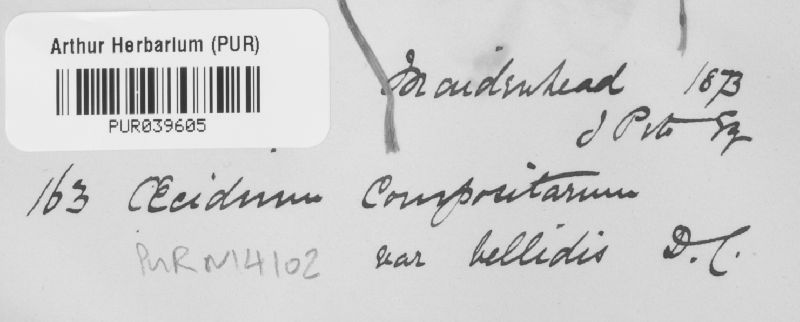 Arthur Herbarium (PUR)
PUR039605
Maidenhead 1873
J Peto Esq
163 Œcidium Compositarum
var bellidis D.C.
PUR N14102